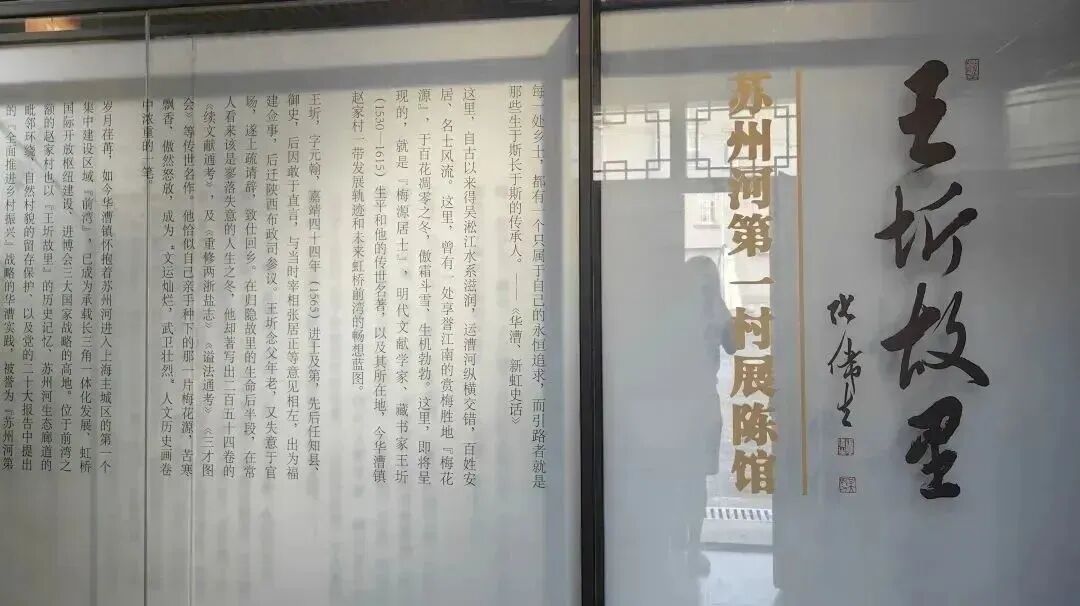 王圻故里
苏州河第一村展陈馆
每一处乡土，都有一个只属于自己的永恒追求，而引路者就是
那些生于斯长于斯的传承人。——《华漕，新虹史话》
这里，自古以来得吴淞江水系滋润，运漕河纵横交错，百姓安
居、名士风流。这里，曾有一处享誉江南的赏梅胜地『梅花
源』，于百花凋零之冬，傲霜斗雪、生机勃勃。这里，即将呈
现的，就是『梅源居士』，明代文献学家、藏书家王圻
（1530-1615）生平和他的传世名著，以及其所在地，今华漕镇
赵家村一带发展轨迹和未来虹桥前湾的畅想蓝图。
王圻，字元翰，嘉靖四十四年（1565）进士及第，先后任知县、
御史，后因敢于直言，与当时宰相张居正等意见相左，出为福
建佥事，后迁陕西布政司参议。王圻念父年老，又失意于官
场，遂上疏请辞，致仕回乡。在归隐故里的生命后半段，在常
人看来该是寥落失意的人生之冬，他却著写出二百五十四卷的
《续文献通考》，及《重修两浙盐志》《谥法通考》《三才图
会》等传世名作。他恰似自己亲手种下的那一片梅花源，苦寒
飘香、傲然怒放，成为“文运灿烂，武卫壮烈”。人文历史画卷
中浓重的一笔。
岁月荏苒，如今华漕镇怀抱着苏州河进入上海主城区的第一个
集中建设区域『前湾』，已成为承载长三角一体化发展、虹桥
国际开放枢纽建设、进博会三大国家战略的高地。位于前湾之
额的赵家村也以『王圻故里』的历史记忆、苏州河生态廊道的
毗邻环绕、自然村貌的留存保护、以及党的二十大报告中提出
的『全面推进乡村振兴』战略的华漕实践，被誉为『苏州河第